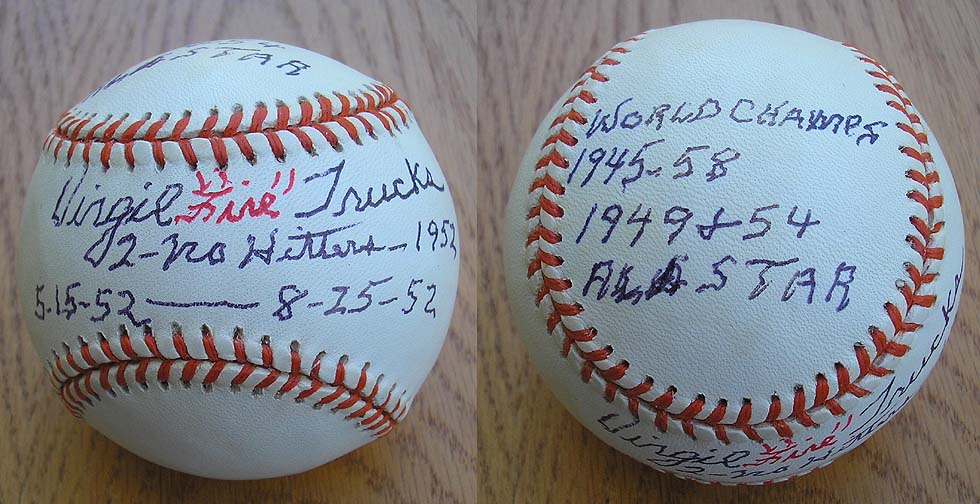 ALL STAR
Virgil "Fire" Trucks
2-no Hitters - 1952
5-15-52 — 8-25-52
WORLD CHAMPS
1945-58
1949 & 54
ALL STAR
Virgil "Fire" Trucks
2-no Hitters